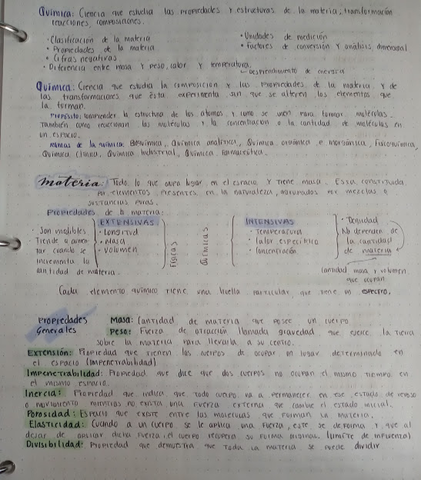 Química: Ciencia que estudia las propiedades y estructuras de la materia, transformación
reacciones, composiciones.
· Clasificación de la materia
· Propiedades de la materia
· Cifras negativas
· Diferencia entre masa y peso, calor y temperatura.
· Unidades de medición
· Factores de conversión y análisis dimensional
Desprendimiento de energía
Química: Ciencia que estudia la composición y las propiedades de la materia y de
las transformaciones que ésta experimenta sin que se alteren los elementos que
la forman.
Propósito: comprender la estructura de los átomos y como se unen para formar moléculas.
También como reaccionan las moléculas y la concentración o la cantidad de moléculas en
un espacio.
Ramas de la química: Bioquímica, Química analítica, Química orgánica e inorgánica, Fisicoquímica,
Química clínica, Química industrial, Química farmacéutica.
materia: Todo lo que ocupa lugar en el espacio y tiene masa. Esta constituida
por elementos presentes en la naturaleza, agrupados en mezclas o
sustancias puras.
Propiedades de la materia:
· Son medibles
Tiende a aumentar cuando se
incrementa la
cantidad de materia.
EXTENSIVAS
· Longitud
· Masa
· Volumen
Físicas
Químicas
INTENSIVAS
· Temperatura
· Calor específico
· Concentración
· Densidad
No dependen de
la cantidad
de materia
cantidad masa y volumen
que ocupan.
Cada elemento químico tiene una huella particular que tiene un espectro.
Propiedades
Generales
Masa: Cantidad de materia que posee un cuerpo
Peso: Fuerza de atracción llamada gravedad que ejerce la tierra
sobre la materia para llevarla a su centro.
Extensión: Propiedad que tienen los cuerpos de ocupar un lugar determinado en
el espacio (impenetrabilidad)
Impenetrabilidad: Propiedad que dice que dos cuerpos no ocupan el mismo tiempo en
el mismo espacio.
Inercia: Propiedad que indica que todo cuerpo va a permanecer en ese estado de reposo
o movimiento mientras no exista una fuerza externa que cambie el estado inicial.
Porosidad: Espacio que existe entre las moléculas que forman la materia.
Elasticidad: Cuando a un cuerpo se le aplica una fuerza, este se deforma y, que al
dejar de aplicar dicha fuerza el cuerpo recupera su forma original.
Divisibilidad: Propiedad que demuestra que toda la materia se puede dividir